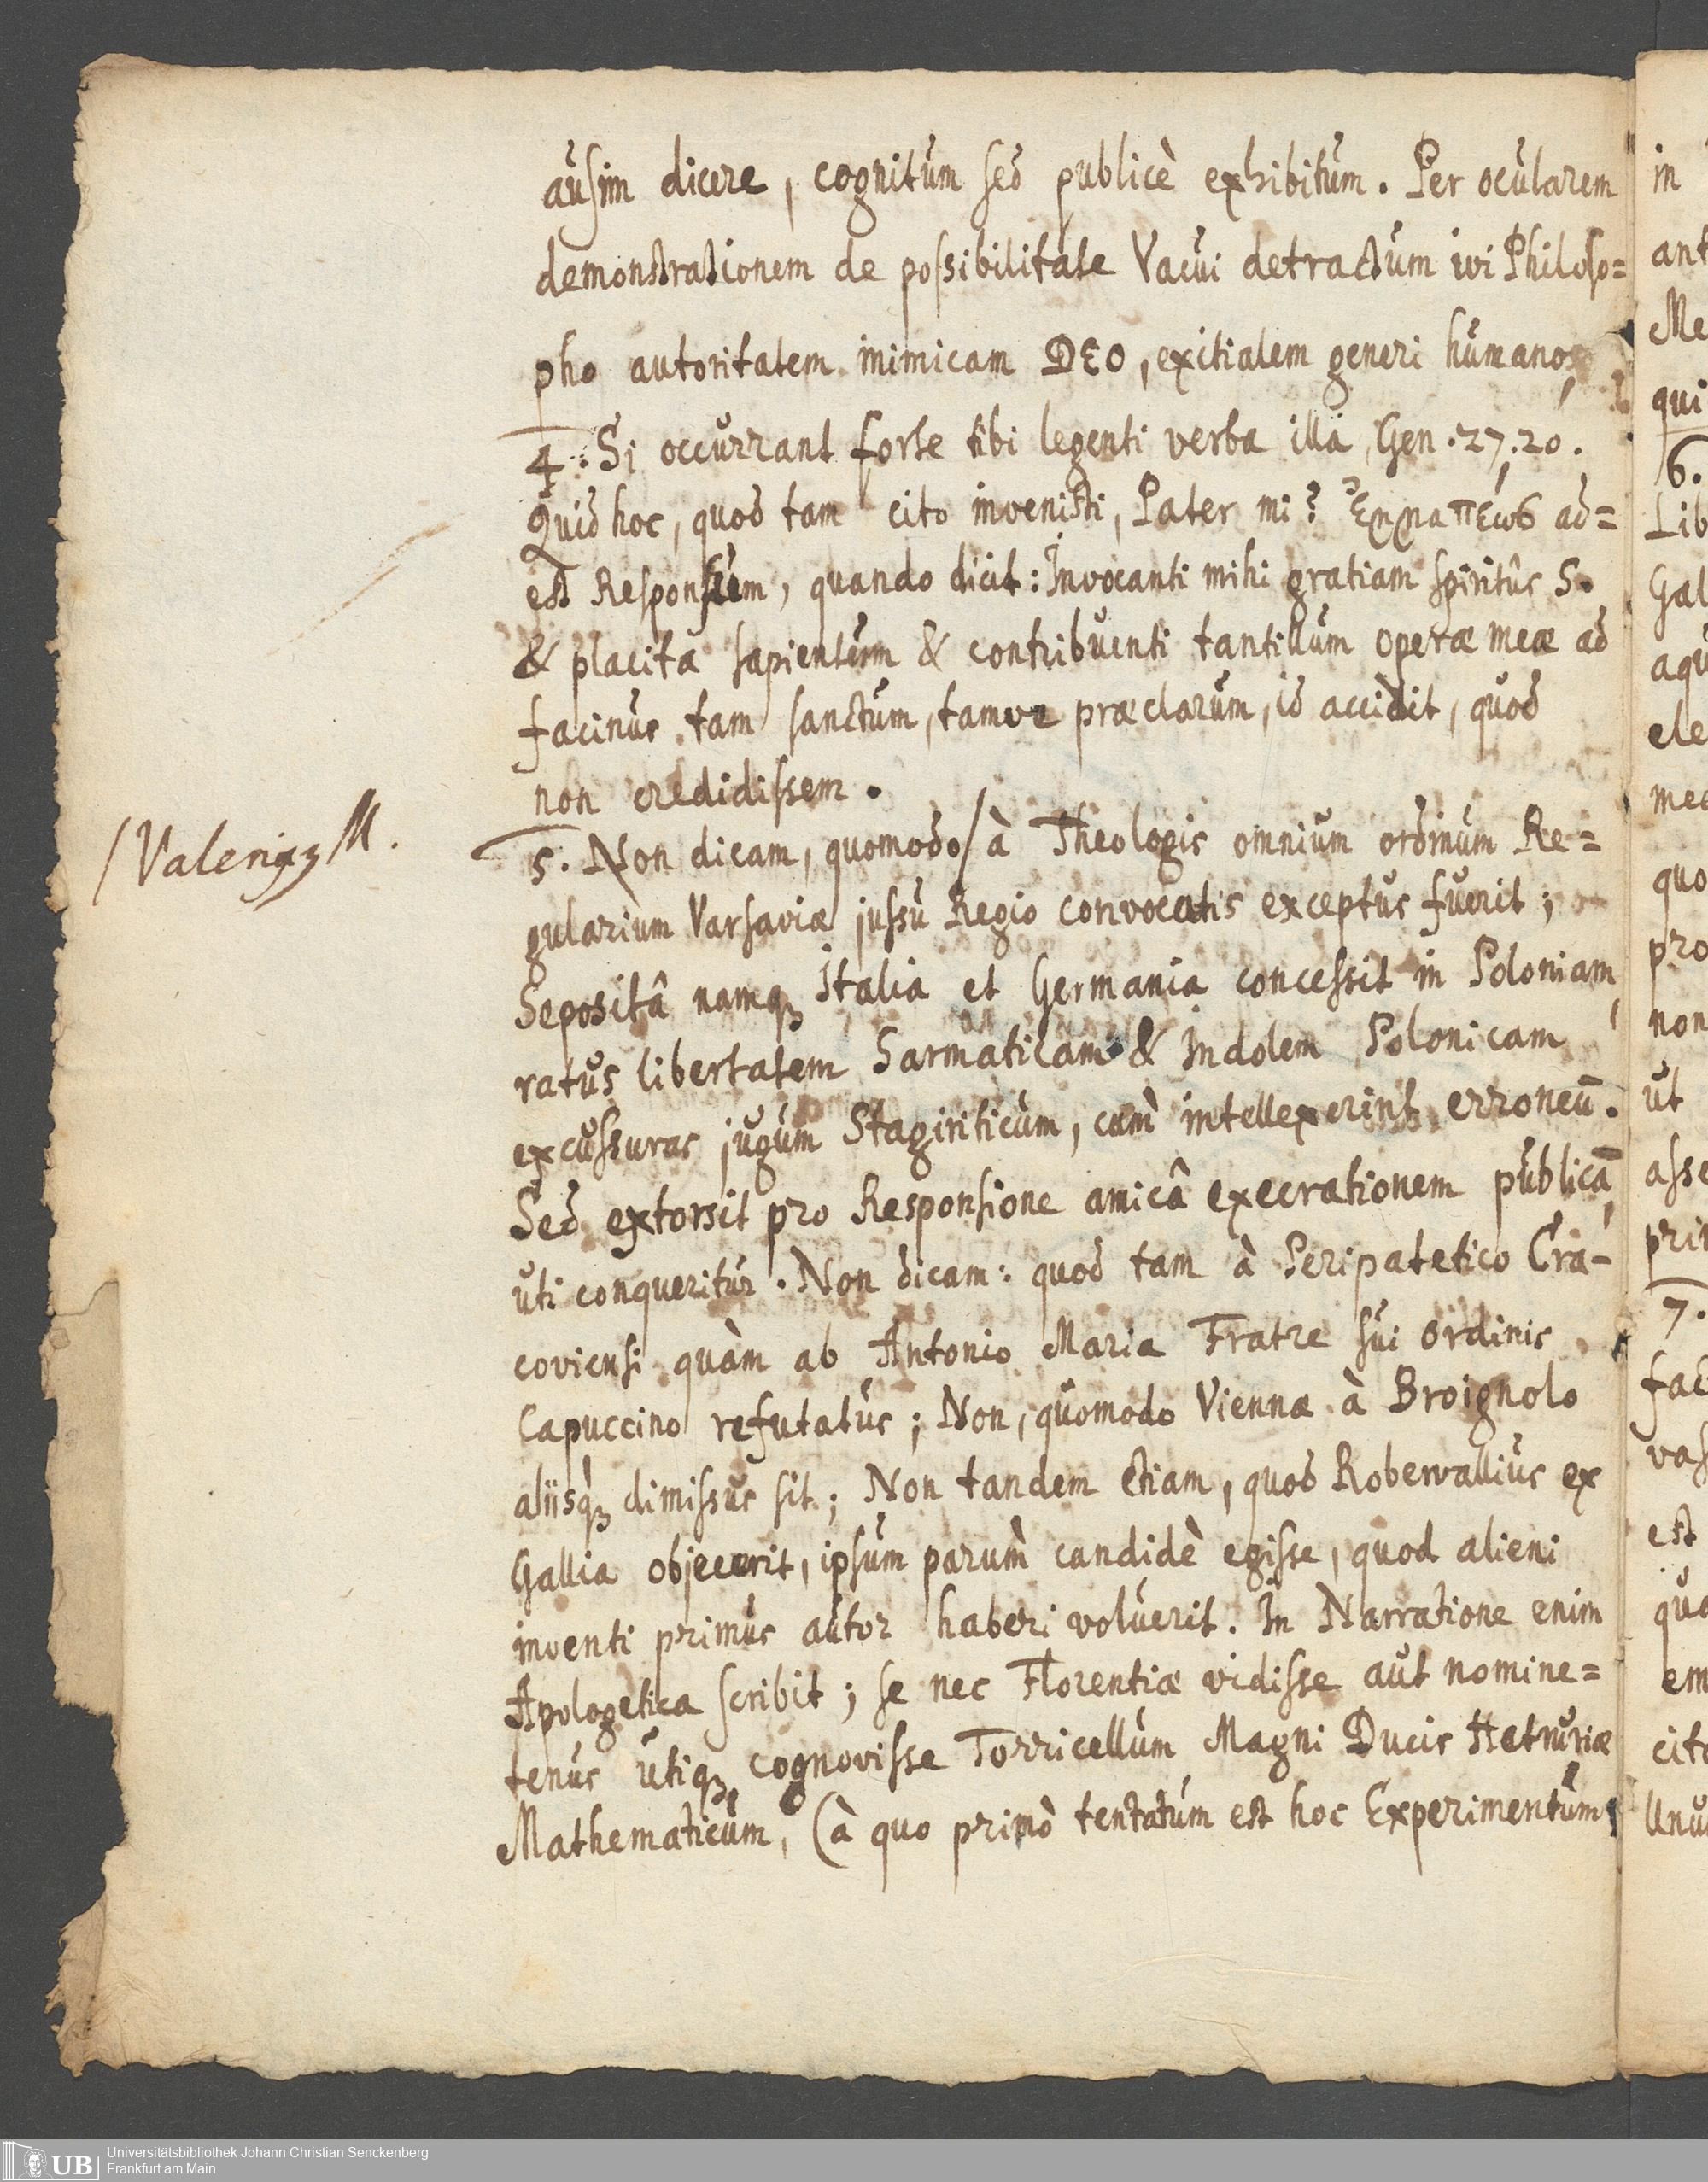 ausim dicere, cognitum sed publicè exhibitum. Per ocularem
demonstrationem de possibilitate Vacui detractum ivi Philoso=
pho autoritatem inimicam DEO, exitialem generi humano,
4. Si occurrant forte tibi legenti verba illa, Gen. 27, 20.
Quid hoc, quod tam cito invenisti, Pater mi? ad=
est Responsum, quando dicit: Invocanti mihi gratiam spiritûs S.
& placita sapientum & contribuenti tantillum operæ meæ ad
facinus tam sanctum, tamve præclarum, id accidit, quod
non credidissem.
/Valerig M.
5. Non dicam, quomodo/à Theologis omnium ordinum Re=
gularium Varsaviæ jussu Regio convocatis exceptus fuerit;
Sepositâ namq Italia et Germania concessit in Poloniam,
ratus libertatem Sarmaticam & Indolem Polonicam
excussuras jugum Stagiriticum, cum intellexerint erroneū.
Sed extorsit pro Responsione amicâ execrationem publicā,
uti conqueritur. Non dicam: quod tam à Peripatetico Cra-
coviensi quàm ab Antonio Maria Fratre sui ordinis
Capuccino refutatus; Non, quomodo Viennæ à Broignolo
aliisq dimissus sit; Non tandem etiam, quod Robervallius ex
Gallia objecerit, ipsum parum candidè egisse, quod alieni
inventi primus autor haberi voluerit. In Narratione enim
Apologetica scribit; se nec Florentiæ vidisse aut nomine=
tenus utiq cognovisse Torricellum Magni Ducis Hetruriæ
Mathematicum, (à quo primò tentatum est hoc Experimentum
in
ant
Me
qui
6.
Lib
Gal
aqu
ele
med
quo
pro
non
ut
asse
prin
7.
fac
vas
est
quo
em
cito
Unu
UB Universitätsbibliothek Johann Christian Senckenberg
Frankfurt am Main